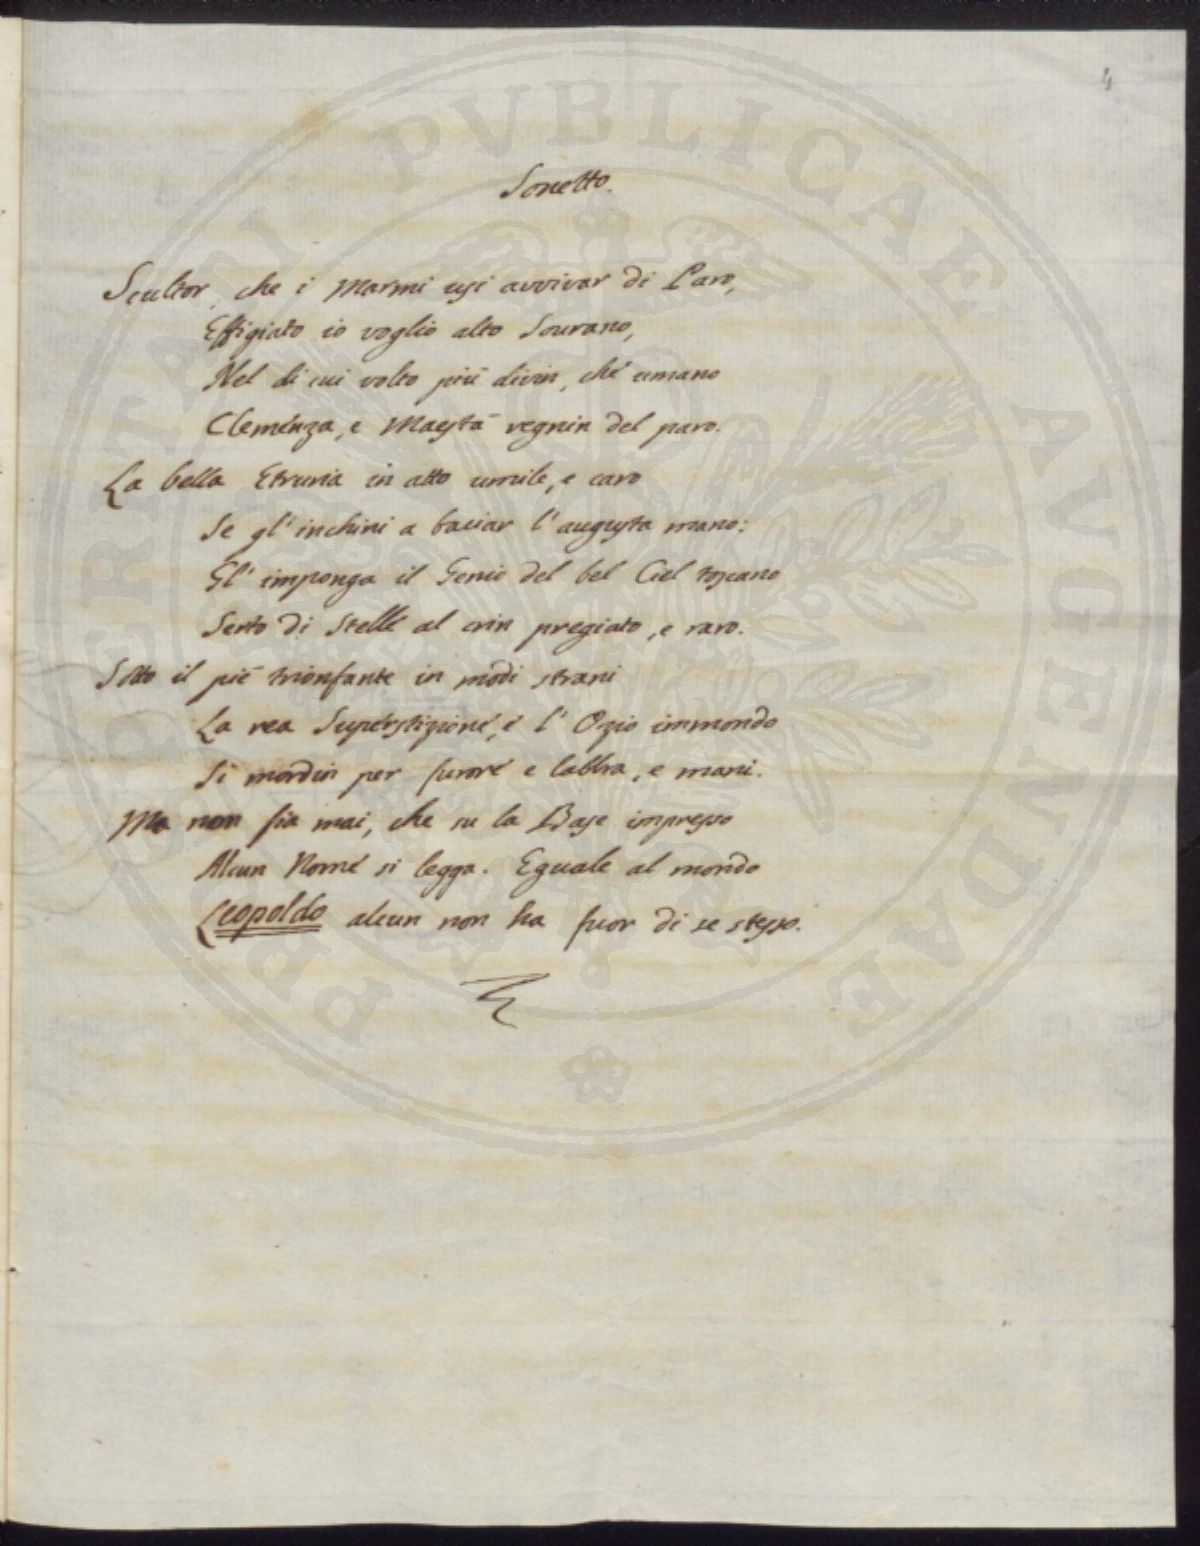 4
Sonetto.
Scultor, che i Marmi usi avvivar di Paro,
Effigiato io voglio alto Sovrano,
Nel di cui volto più divin, che umano
Clemenza, e Maestà regnin del paro.
La bella Etruria in atto umile, e caro
Se gl' inchini a baciar l' augusta mano:
Gl' imponga il Genio del bel Ciel toscano
Serto di Stelle al crin pregiato, e raro.
Sotto il piè trionfante in modi strani
La rea Superstizione, e l' Ozio immondo
Si mordin per furore e labbra, e mani.
Ma non fia mai, che su la Base impresso
Alcun Nome si legga. Eguale al mondo
Leopoldo alcun non ha fuor di se stesso.
PROSPERITATI PVBLICAE AVGENDAE